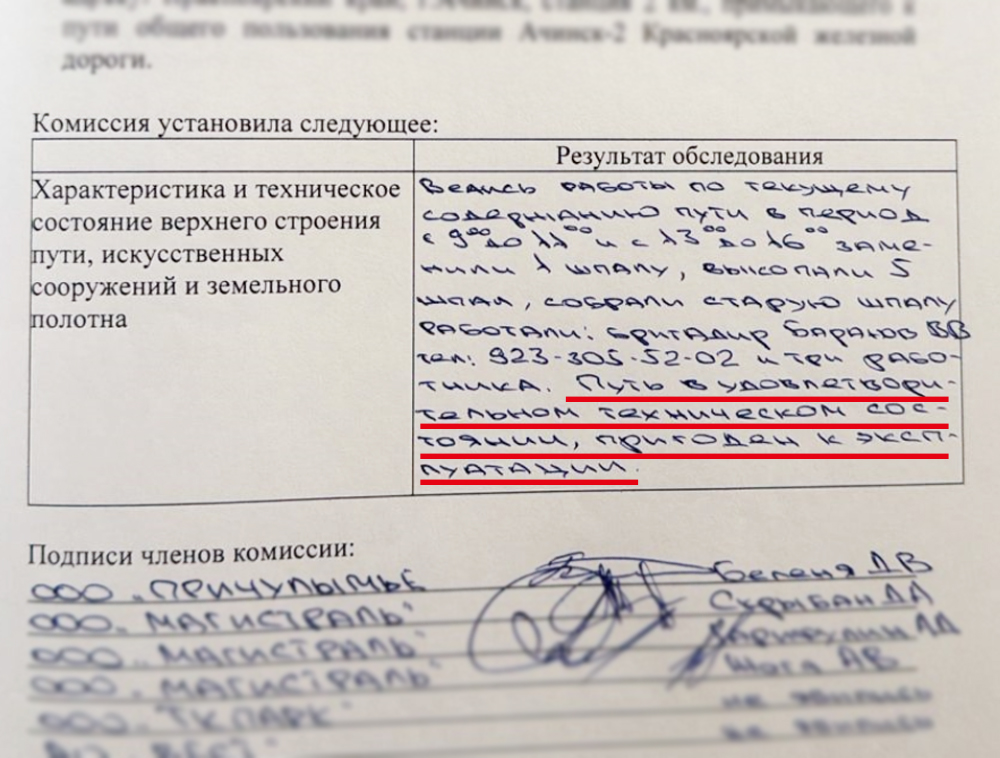 пути общего пользования станции Ачинск-2 Красноярской железной
дороги.
Комиссия установила следующее:
Результат обследования
Характеристика и техническое
состояние верхнего строения
пути, искусственных
сооружений и земельного
полотна
Велись работы по текущему
содержанию пути в период
с 9⁰⁰ до 11⁰⁰ и с 13⁰⁰ до 16⁰⁰ заме-
нили 1 шпалу, выкопали 5
шпал, собрали старую шпалу
работали: бригадир Баранов ВВ
тел: 923-305-52-02 и три рабо-
тника. Путь в удовлетвори-
тельном техническом сос-
тоянии, пригоден к эксп-
луатации.
Подписи членов комиссии:
ООО "ПРИЧУЛЫМЬЕ Беленя ДВ
ООО "МАГИСТРАЛЬ" Скрыбан
ООО "МАГИСТРАЛЬ"
ООО "МАГИСТРАЛЬ" Шога АВ
ООО "ТК ПАРК" не явились
не явились